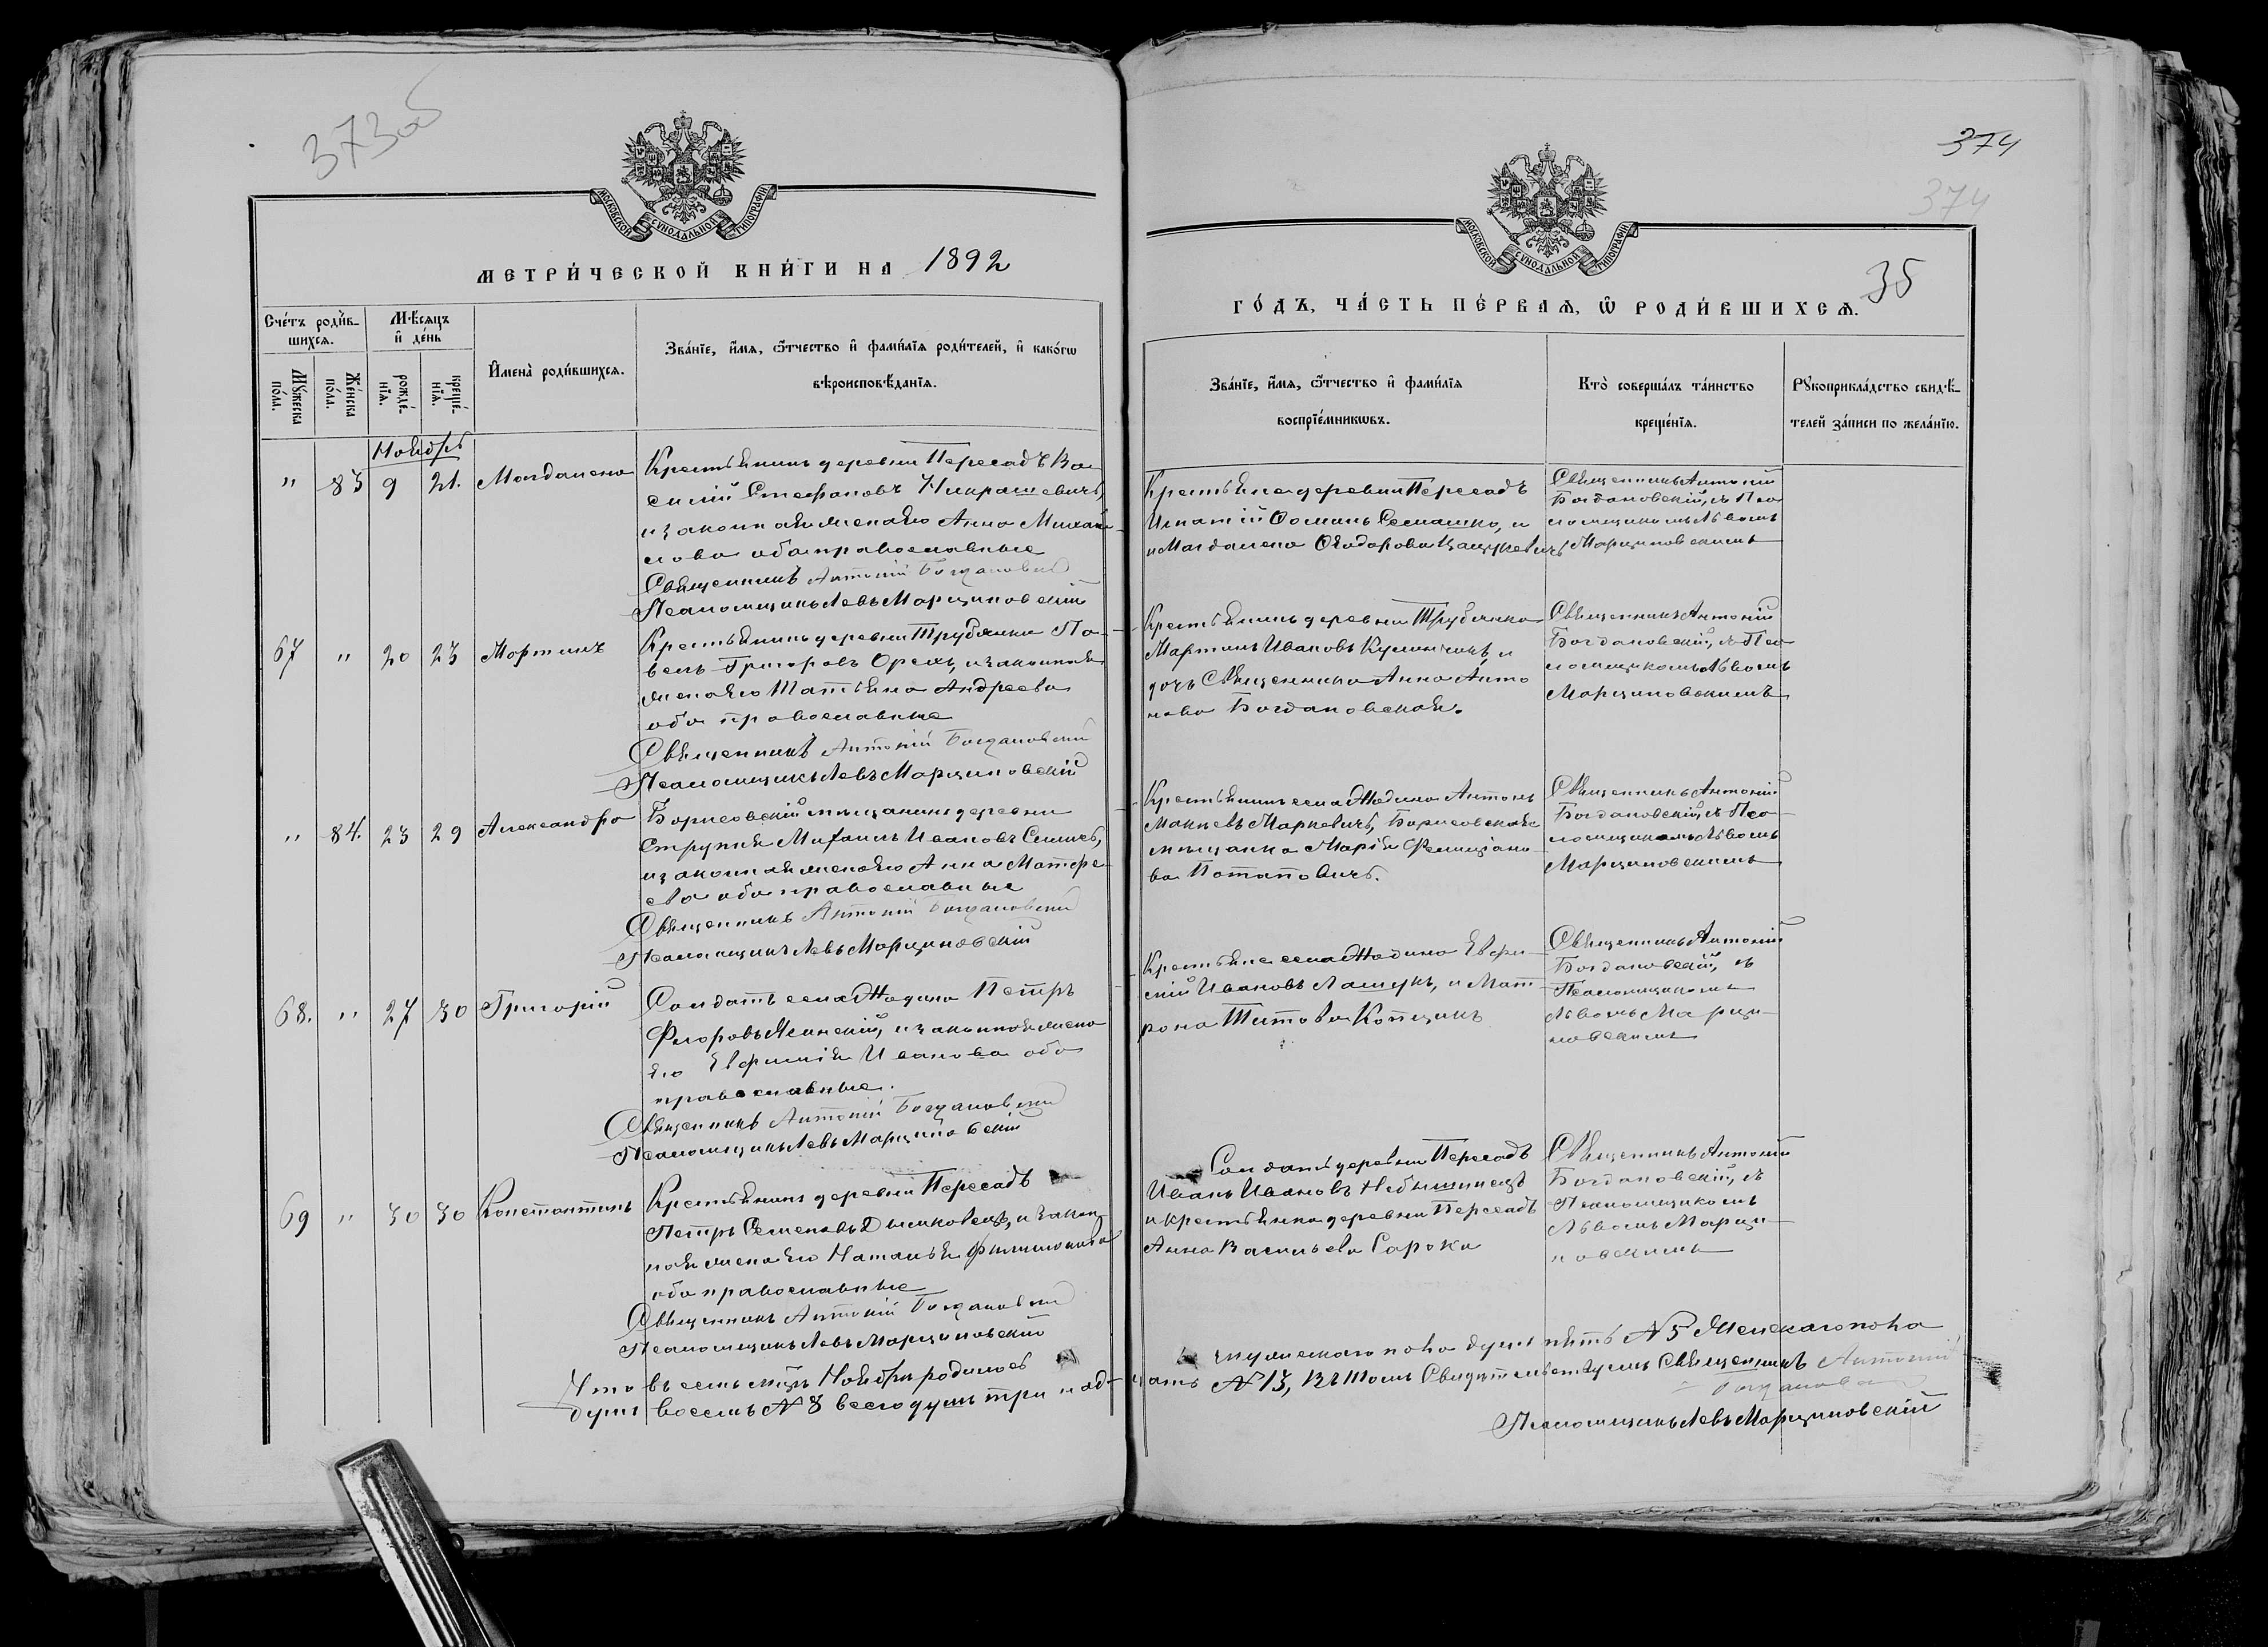 373 об
МОСКОВСКОЙ СУНОДАЛЬНОЙ ТИПОГРАФІИ
МЕТРИ́ЧЕСКОЙ КНИ́ГИ НА 1892
Сче́тъ роди́вшихсѧ.
Мужеска по́ла.
Же́нска по́ла.
Мѣ́сѧцъ и҆ де́нь
рожде́нїѧ.
креще́нїѧ.
И҆мена̀ роди́вшихсѧ.
Зва́нїе, и҆́мѧ, ѻ҆́тчество и҆ фами́лїѧ роди́телей, и҆ како́гѡ
вѣроисповѣ́данїѧ.
Ноябрь
" 83 9 21. Магдалена
Крестьянинъ деревни Пересадъ Ва-
силій Стефановъ Некрашевичъ,
и законная жена его Анна Михаи-
лова оба православные
Священникъ Антоній Богдановскій
Псаломщикъ Левъ Марциновскій
67 " 20 23 Мартинъ
Крестьянинъ деревни Трубянки Па-
велъ Григоровъ Орехъ, и законная
жена его Татьяна Андреева
оба православные
Священникъ Антоній Богдановскій
Псаломщикъ Левъ Марциновскій
" 84. 23 29 Александра
Борисовскій мѣщанинъ деревни
Струпня Михаилъ Ивановъ
и законная жена его Анна Матфе-
ева оба православные
Священникъ Антоній Богдановскій
Псаломщикъ Левъ Марциновскій
68. " 27 30 Григорій
Солдатъ села Жодина Петръ
и законная жена
его Евфимія Иванова оба
православные.
Священникъ Антоній Богдановскій
Псаломщикъ Левъ Марциновскій
69 " 30 30 Константинъ
Крестьянинъ деревни Пересадъ
Петръ Семеновъ Дымковецъ, и закон-
ная жена его Наталья Филимонова
оба православные
Священникъ Антоній Богдановскій
Псаломщикъ Левъ Марциновскій
Что въ семъ мѣсяцѣ Ноябрѣ родилось
душъ восемь № 8 всего душъ три надъ-
374
374
МОСКОВСКОЙ СУНОДАЛЬНОЙ ТИПОГРАФІИ
35
ГО́ДЪ, ЧА́СТЬ ПЕ́РВАѦ, Ѡ҆ РОДИ́ВШИХСѦ.
Зва́нїе, и҆́мѧ, ѻ҆́тчество и҆ фами́лїѧ
воспрїе́мникѡвъ.
Кто̀ соверша́лъ та́инство
креще́нїѧ.
Рꙋкоприкла́дство свидѣ́-
телей за́писи по жела́нїю.
Крестьяне деревни Пересадъ
Игнатій Фоминъ Семашко, и
и Магдалена Феодорова
Священникъ Антоній
Богдановскій, съ Пса-
ломщикомъ Львомъ
Марциновскимъ
Крестьянинъ деревни Трубянка
Мартинъ Ивановъ и
дочь Священника Анна Анто
нова Богдановская.
Священникъ Антоній
Богдановскій, съ Пса-
ломщикомъ Львомъ
Марциновскимъ
Крестьянинъ села Жодина Антонъ
Маркевичъ, Борисовская
мѣщанка Марія Фелиціано-
ва Потаповичъ.
Священникъ Антоній
Богдановскій, съ Пса-
ломщикомъ Львомъ
Марциновскимъ
Крестьяне села Жодина Евфи-
мій Ивановъ Лашукъ, и Мат-
рона Титова Копцикъ
Священникъ Антоній
Богдановскій, съ
Псаломщикомъ
Львомъ Марци-
новскимъ
Солдатъ деревни Пересадъ
Иванъ Ивановъ Небышинецъ
и крестьянка деревни Пересадъ
Анна Васильева Сорока
Священникъ Антоній
Богдановскій, съ
Псаломщикомъ
Львомъ Марци-
новскимъ
мужескаго пола душъ пять № 5 Женскаго пола
цать № 13, Въ томъ Свидѣтельствуемъ Священникъ Антоній
Богдановскій
Псаломщикъ Левъ Марциновскій